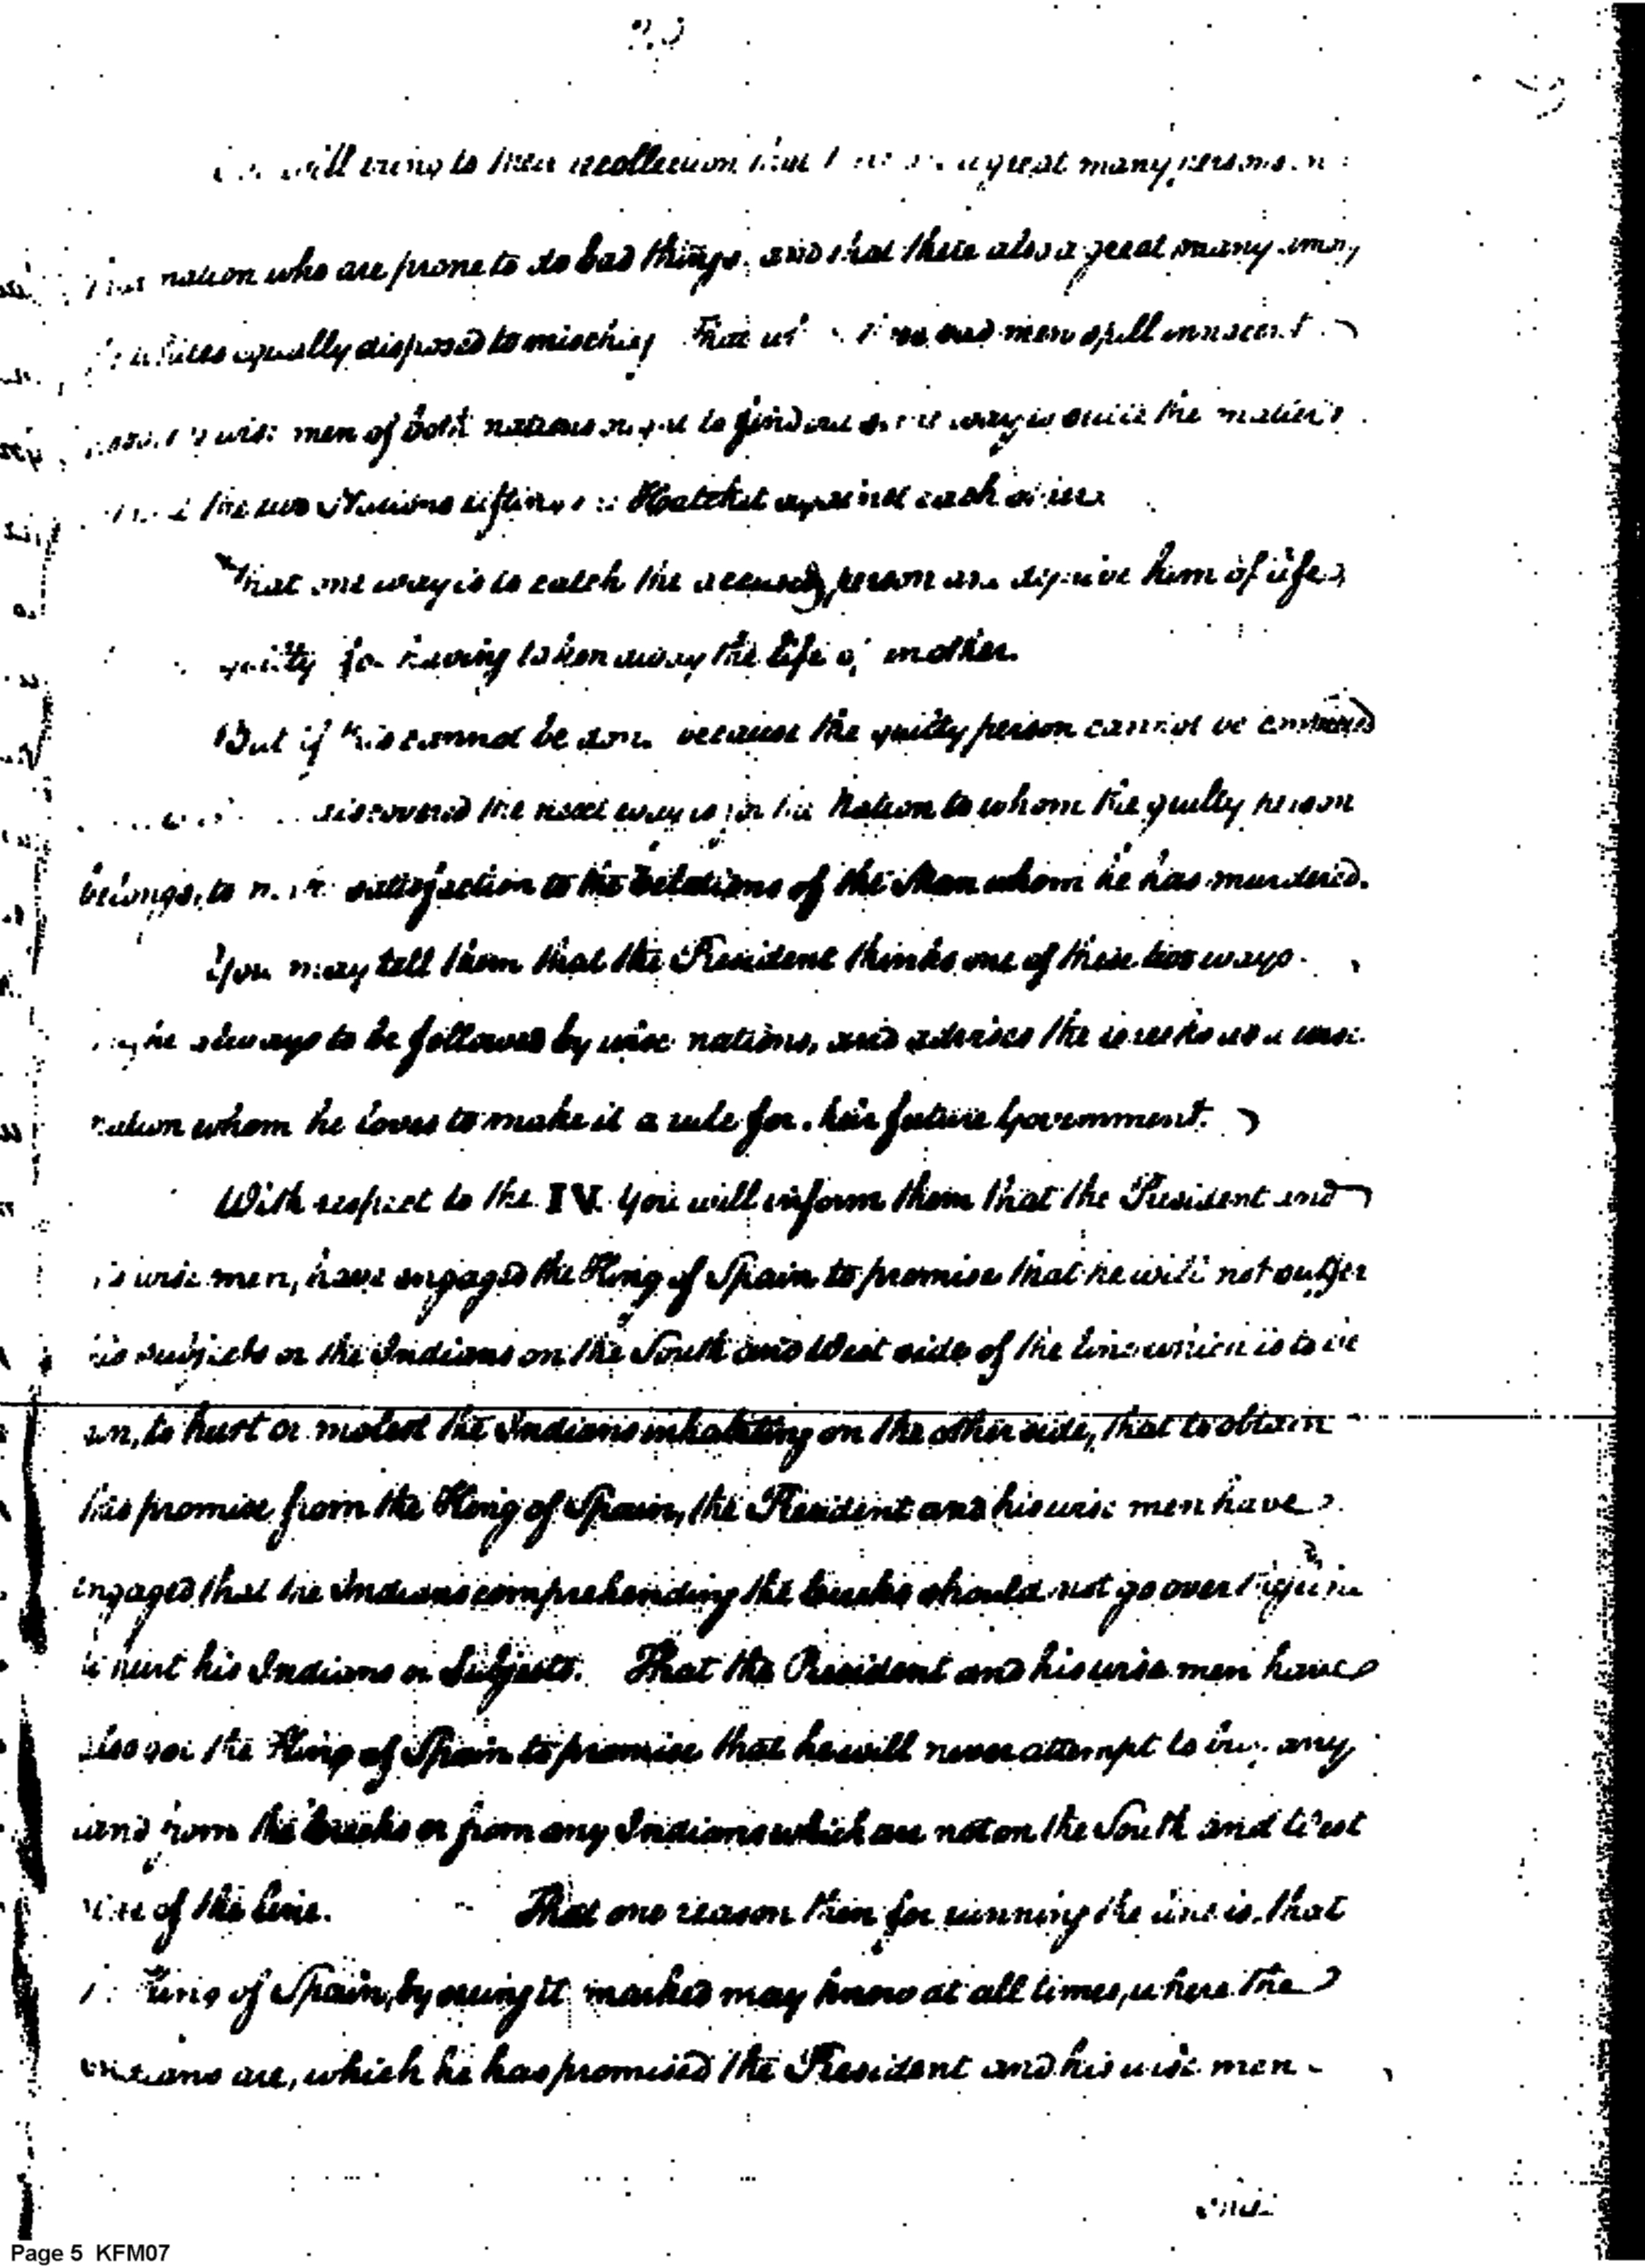 will bring to their recollection that a great many persons
nation who are prone to do bad things, and that there also a great many among
whites equally disposed to mischief That bad men spill innocent
wise men of both nations ought to find out some way to settle the matter
the two Nations lifting Hatchet against each other
That one way is to catch the accused person and deprive him of life
guilty for having taken away the life of another.
But if this cannot be done because the guilty person cannot be
discovered the next way is for the Nation to whom the guilty person
belongs, to make satisfaction to the relations of the Man whom he has murdered.
You may tell them that the President thinks one of these two ways
always to be followed by wise nations, and advises the Creeks as a wise
nation whom he loves to make it a rule for their future Government.
With respect to the IV. You will inform them that the President and
his wise men, have engaged the King of Spain to promise that he will not suffer
his subjects or the Indians on the South and West side of the line which is to be
run, to hurt or molest the Indians inhabiting on the other side, that to obtain
this promise from the King of Spain, the President and his wise men have
engaged that the Indians comprehending the Creeks should not go over
to hurt his Indians or Subjects. That the President and his wise men have
also got the King of Spain to promise that he will never attempt to buy any
land from the Creeks or from any Indians which are not on the South and West
side of the line. That one reason then for running the line is, that
King of Spain, by seeing it marked may know at all times, where the
Indians are, which he has promised the President and his wise men
Page 5 KFM07